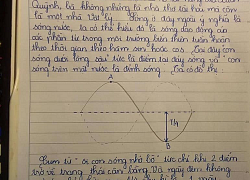 Quỳnh, bà không những là nhà thơ tài hoa mà còn
là một nhà Vật lý. Sóng ở đây ngoài ý nghĩa là
sóng nước, ta có thể hiểu đó là sóng dao động của
các phần tử trong môi trường biến thiên tuần hoàn
theo thời gian theo hàm sin hoặc cos. Cái đáy con
sóng dưới lòng sâu" tức là điểm tại đáy sóng và " con
sóng trên mặt nước là đỉnh sóng. Ta có đồ thị
A
B
Cụm từ "ôi con sóng nhớ bờ" tức chỉ khi 2 điểm
trở về trạng thái cân bằng. Dù ngày đêm không